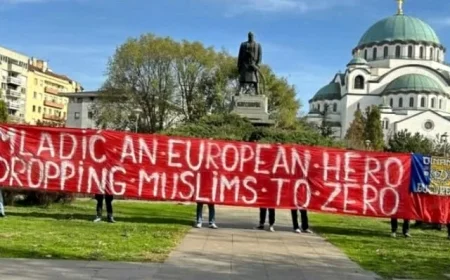 MLADIC AN EUROPEAN·HERO
DROPPING MUSLIMS·TO·ZERO